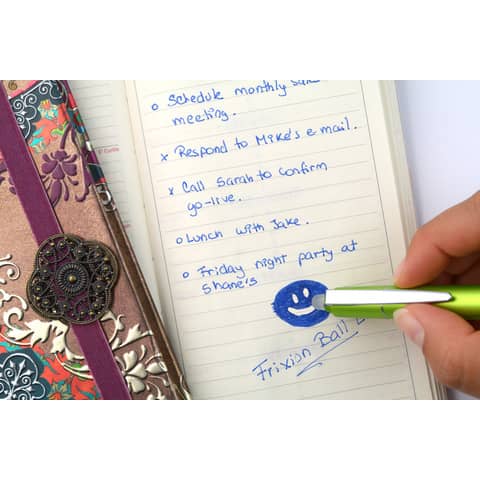 o Schedule monthly
meeting.
x Respond to Mike's e mail.
x Call Sarah to confirm
go-live.
o Lunch with Jake.
o Friday night party at
Shane's
Frixion Ball